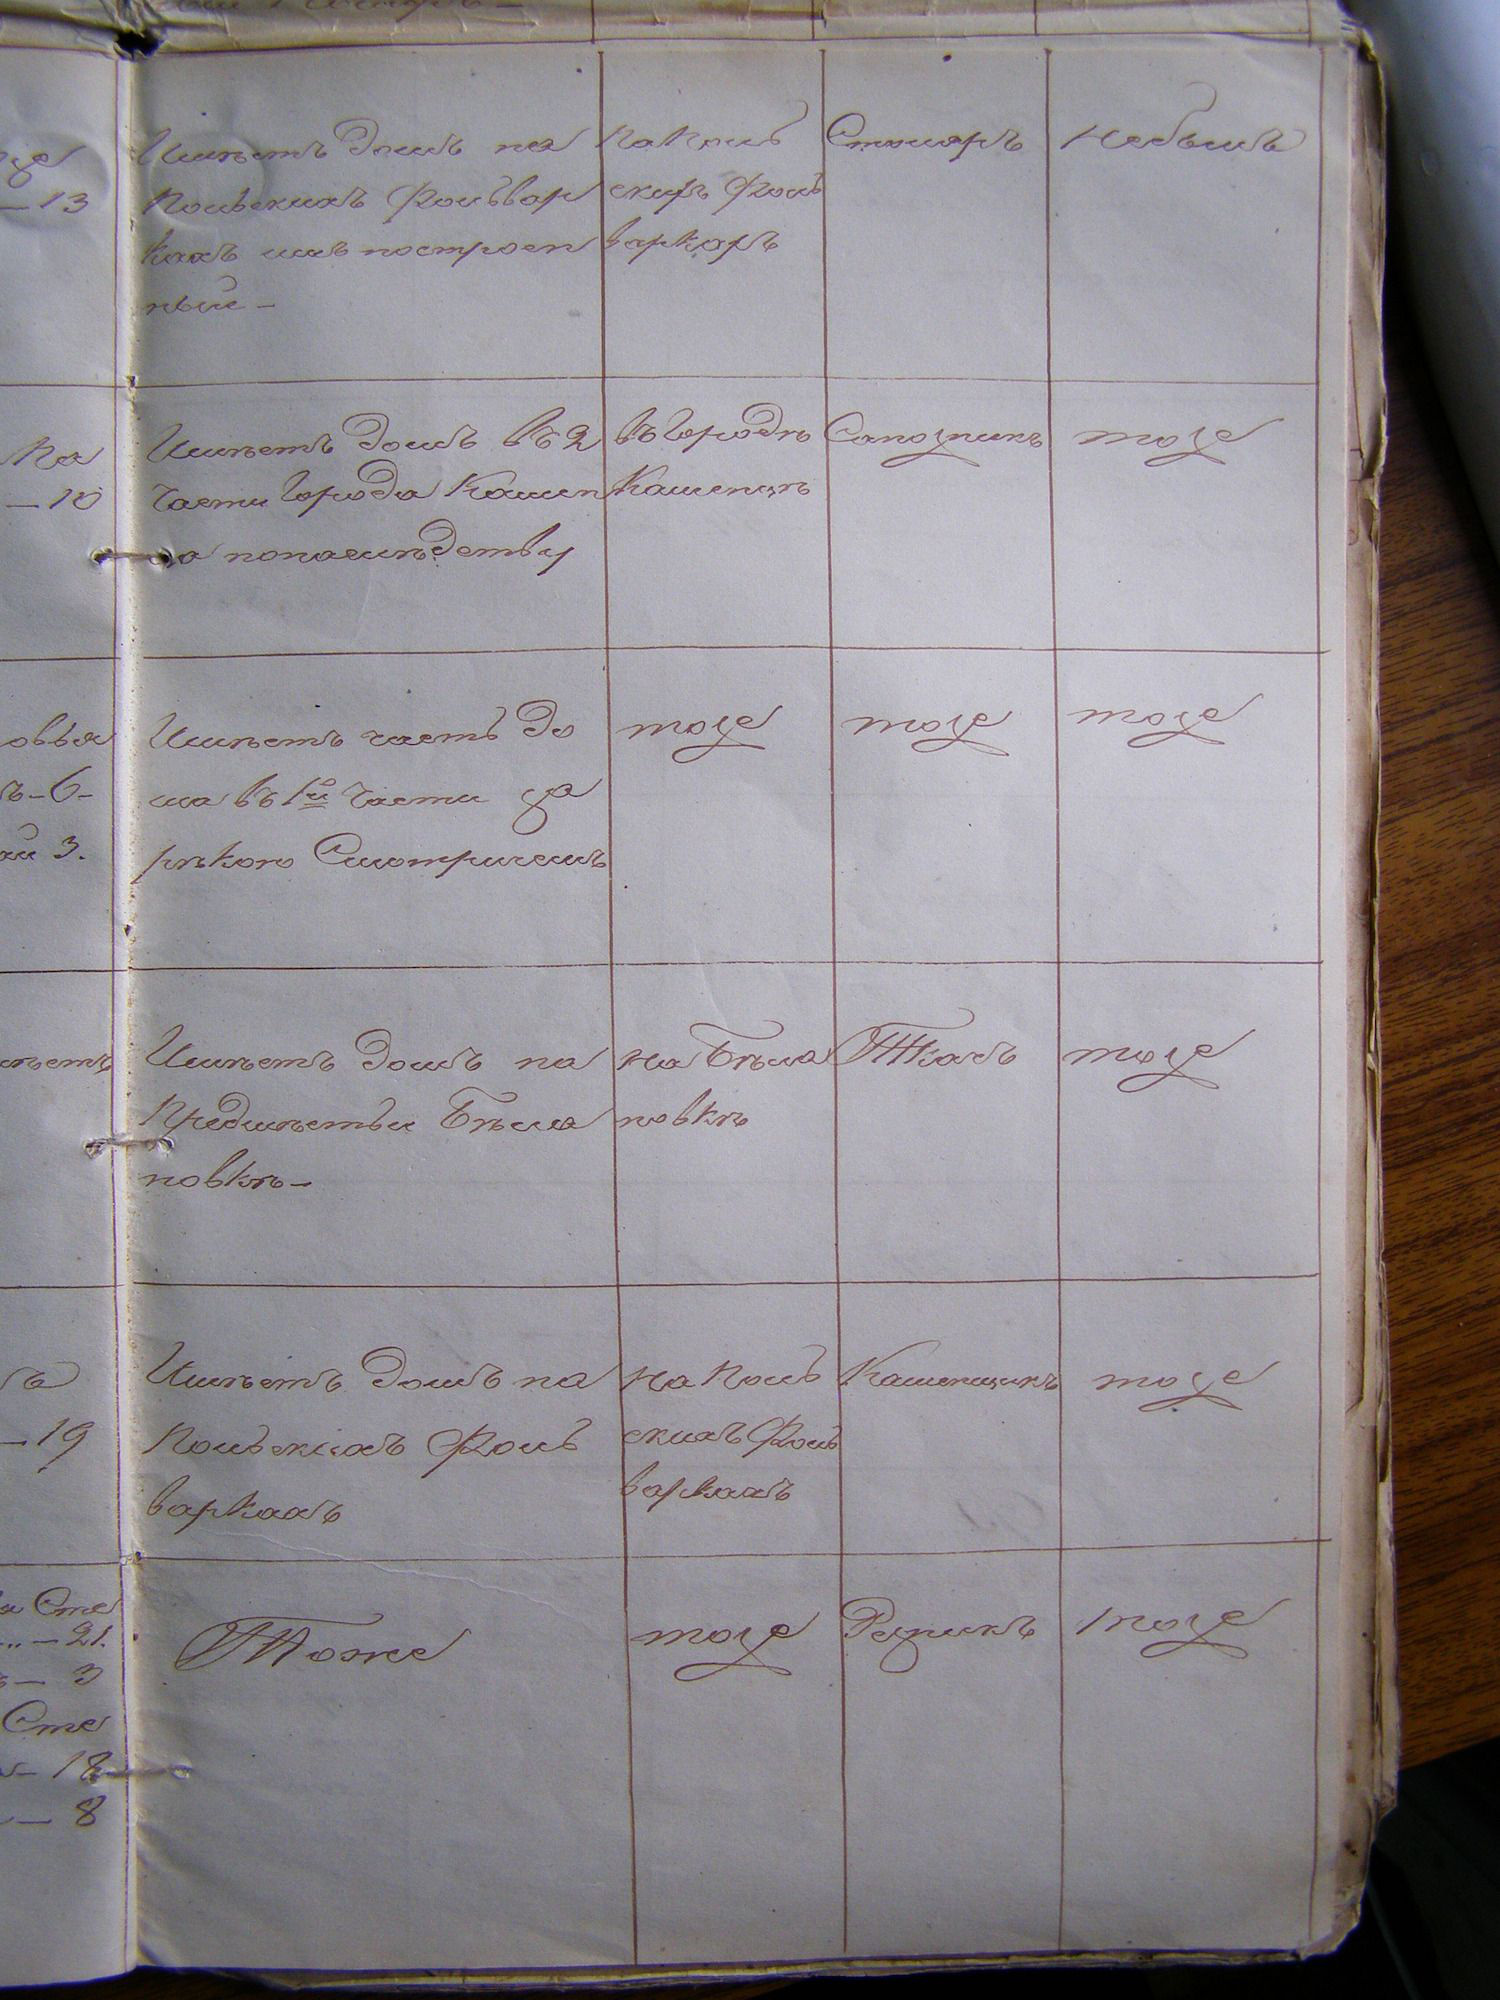 же
— 13
Имѣетъ домъ на
Польскихъ Фольвар
кахъ имъ построен
ный —
На Поль
скихъ Фоль
варкахъ
Столяръ
Небылъ
на
— 10
Имѣетъ домъ въ 2
части города Камен
ца понаслѣдству
въ городѣ
Каменцѣ
Сапожникъ
тоже
овья
ъ - 6 -
ай 3.
Имѣетъ часть до
ма въ 1й части за
рѣкою Смотричемъ
тоже
тоже
тоже
Имѣетъ домъ на
Предмѣстьи Бѣла
новкѣ —
на Бѣла
новкѣ
Ткачъ
тоже
ъ
— 19
Имѣетъ домъ на
Польскихъ Фоль
варкахъ
на Поль
скихъ Фоль
варкахъ
Каменщикъ
тоже
Сте
— 21.
— 3
Сте
— 18
— 8
Тоже
тоже
Резникъ
тоже